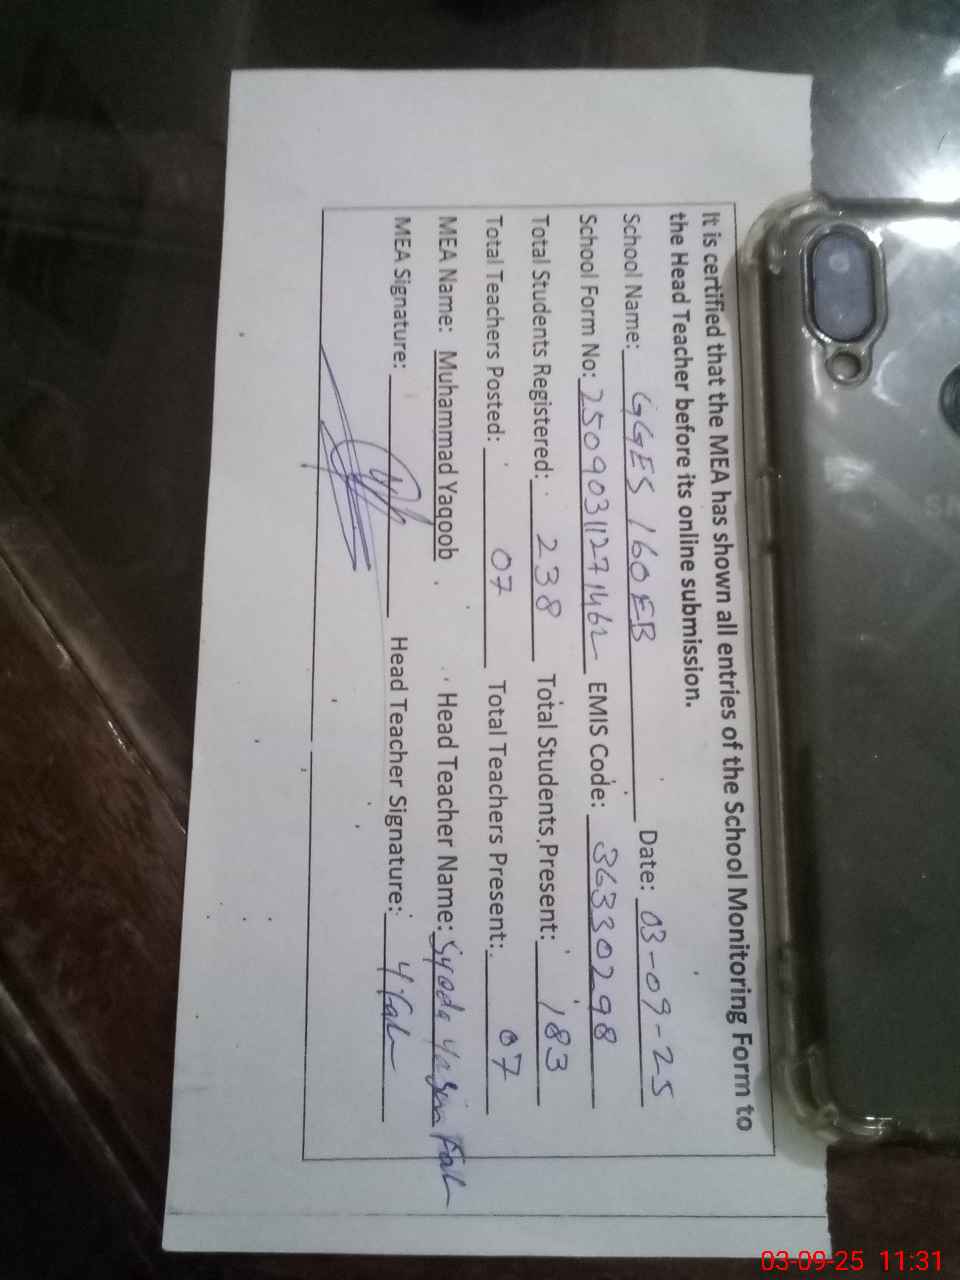 It is certified that the MEA has shown all entries of the School Monitoring Form to
the Head Teacher before its online submission.
School Name: GGES 160 EB Date: 03-09-25
School Form No: 25090311271462 EMIS Code: 36330298
Total Students Registered: 238 Total Students Present: 183
Total Teachers Posted: 07 Total Teachers Present: 07
MEA Name: Muhammad Yaqoob Head Teacher Name: Syeda
MEA Signature: Head Teacher Signature:
03-09-25 11:31